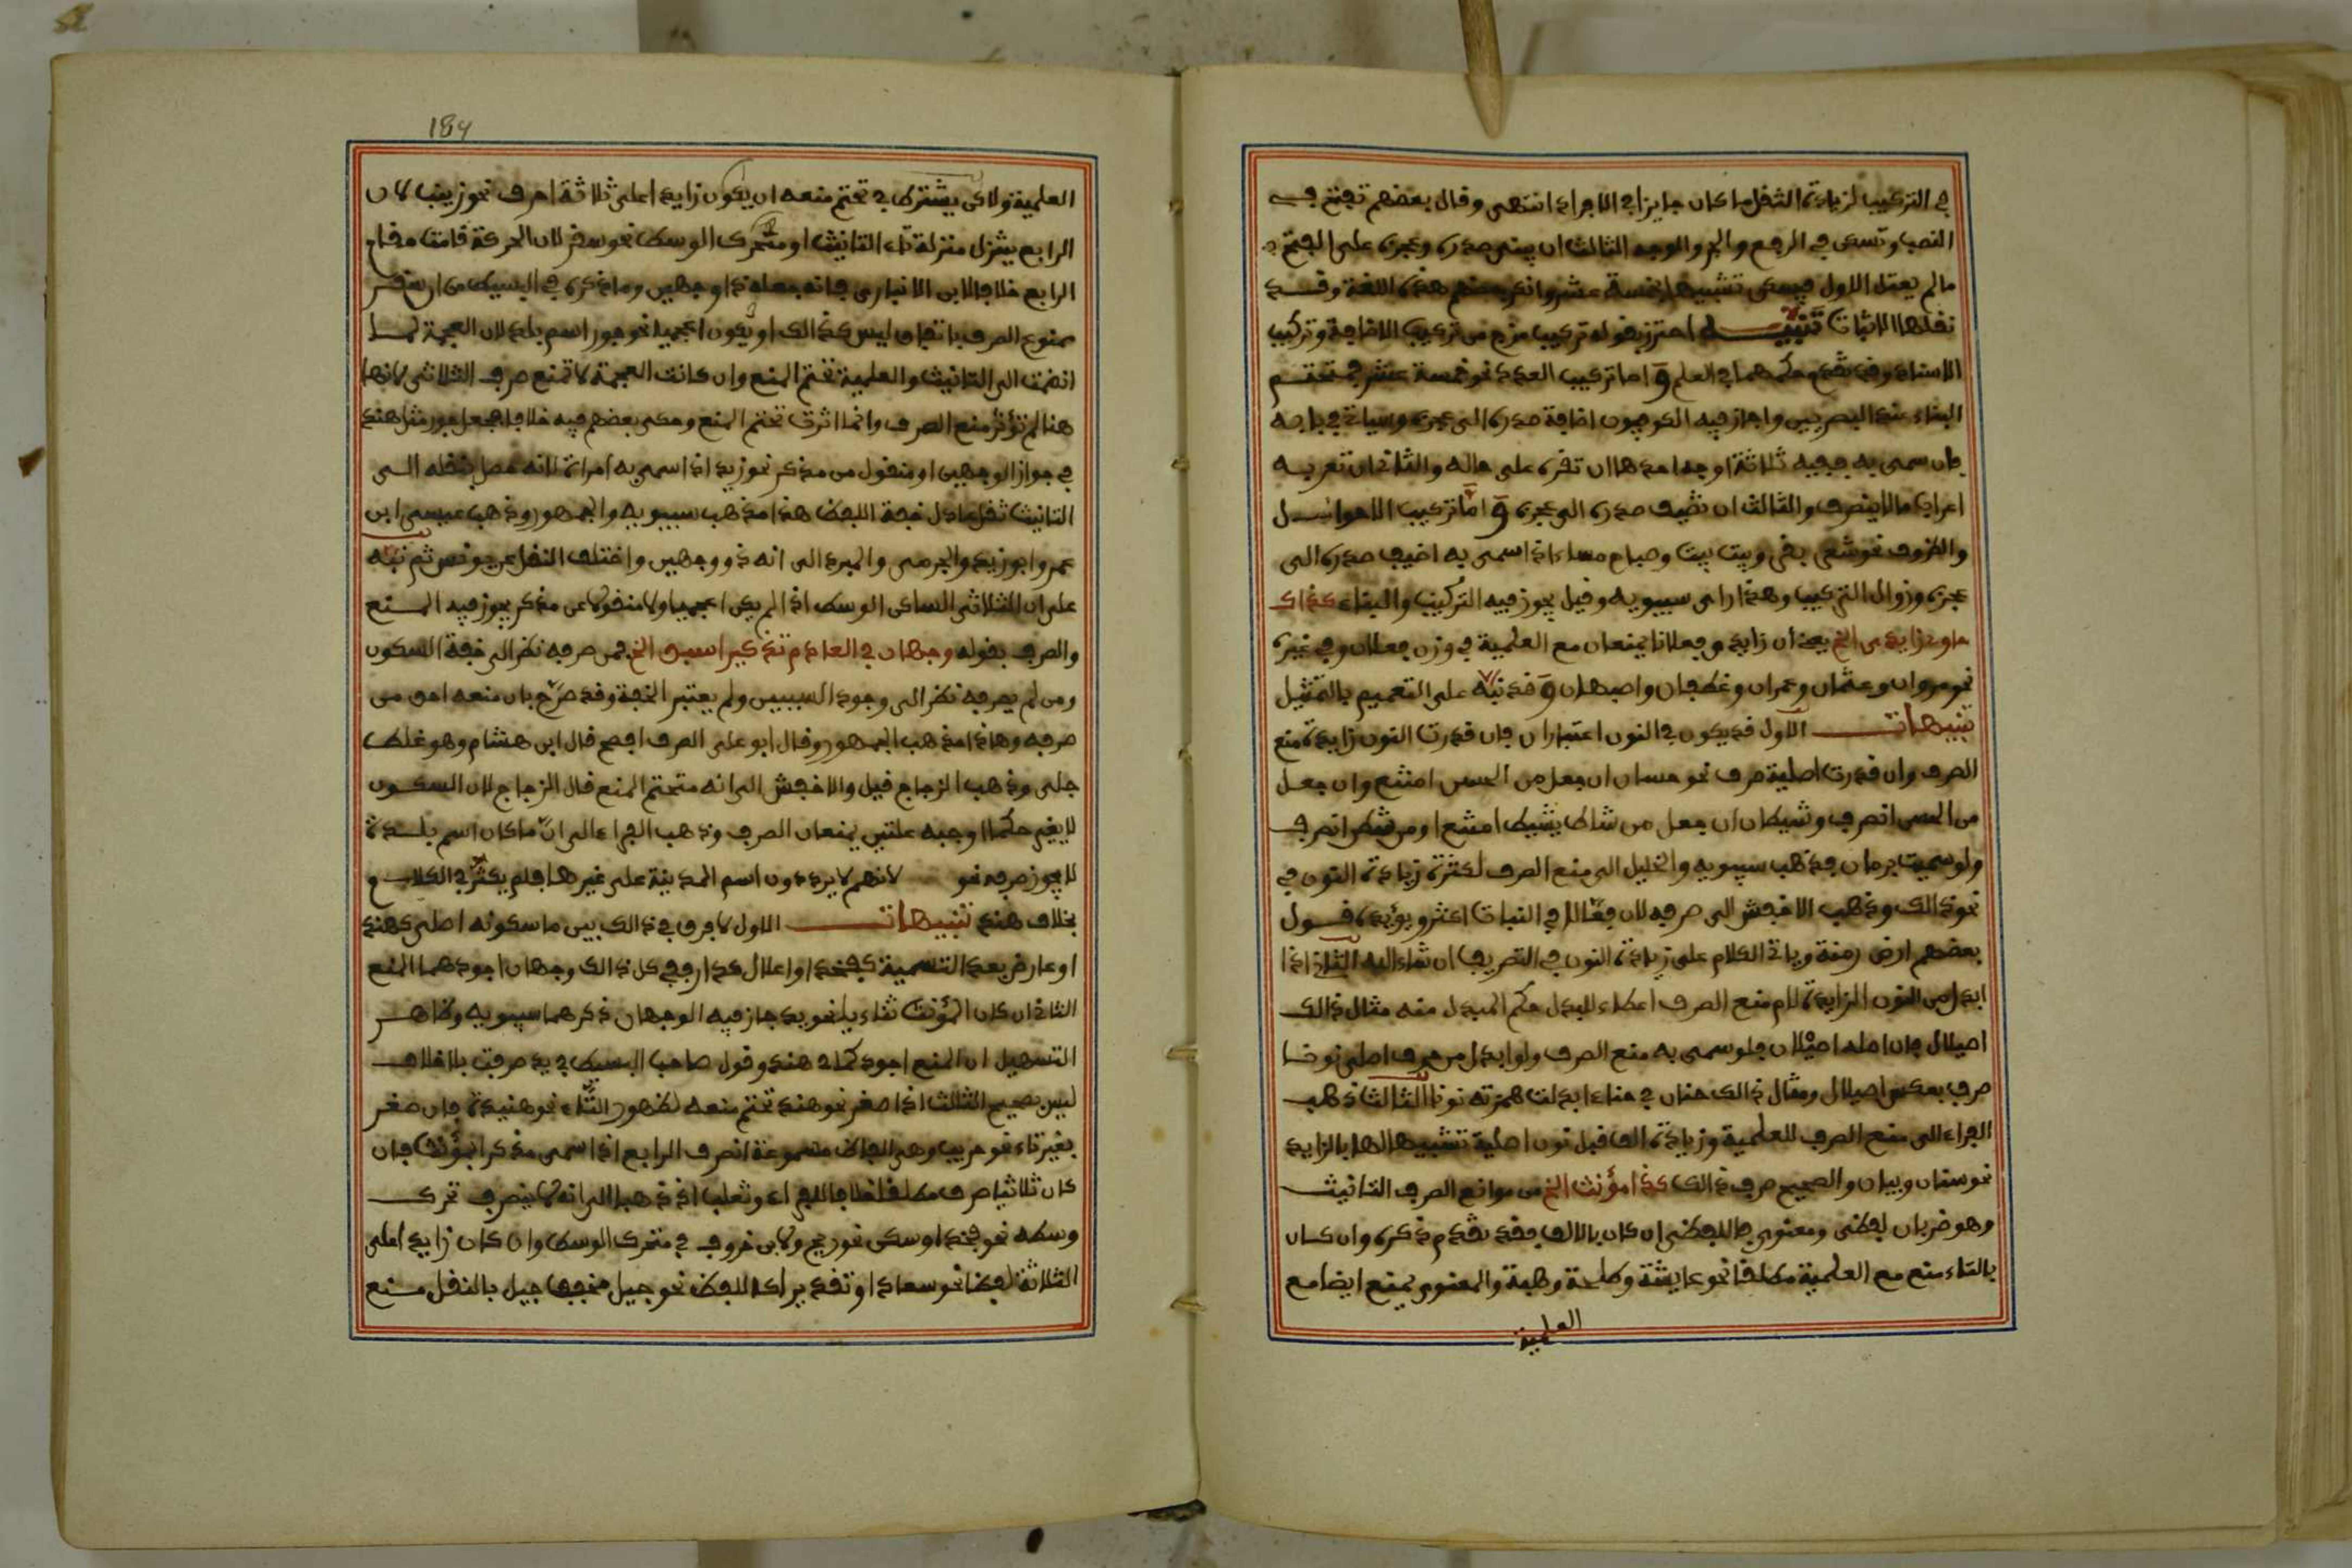 في التركيب لزيادة الثقل ما كان جايزا في الافراد انتهى وقال بعضهم تفتح في
النصب وتسكن في الرفع والجر والوجه الثالث ان يبنى صدره وعجزه على الفتح
ما لم يعتل الاول فيسكن تشبيها بخمسة عشر وانكر بعضهم هذه اللغة وقد
نقلها الاثبات تنبيه احترز بقوله تركيب مزج من تركيب الاضافة وتركيب
الاسناد وقد تقدم حكمهما في العلم و اما تركيب العدد نحو خمسة عشر فمتحتم
البناء عند البصريين واجاز فيه الكوفيون اضافة صدره الى عجزه وسياتي في بابه
فان سمي به ففيه ثلاثة اوجه احدها ان تقره على حاله والثاني ان تعربه
اعراب ما لا ينصرف والثالث ان تضيف صدره الى عجزه و اما تركيب الاحوال
والظروف نحو شغر بغر وبيت بيت وصباح مساء اذا سمي به اضيف صدره الى
عجزه وزوال التركيب وهذا راي سيبويه وقيل يجوز فيه التركيب والبناء كذاك
حاوي زايدي الخ يعني ان زايدي فعلانا يمنعان مع العلمية في وزن فعلان وفي غيره
نحو مروان وعثمان وعمران وغطفان واصبهان و قد نبه على التعميم بالتمثيل
تنبيهات الاول قد يكون في النون اعتباران فان قدرت النون زايدة منع
الصرف وان قدرت اصلية صرف نحو حسان ان جعل من الحس امتنع وان جعل
من الحسن انصرف وشيطان ان جعل من شاط يشيط امتنع او من شطن انصرف
ولو سميت برمان فذهب سيبويه والخليل الى منع الصرف لكثرة زيادة النون في
نحو ذالك وذهب الاخفش الى صرفه لان فعالا في النبات اكثر ويؤيده قول
بعضهم ارض رمنة وياتي الكلام على زيادة النون في التصريف ان شاء الله الثاني اذا
ابدل من النون الزايدة لام منع الصرف اعطاء للبدل حكم المبدل منه مثال ذالك
اصيلال فان اصله اصيلان فلو سمي به منع الصرف ولو ابدل من حرف اصلي نونا
صرف بعكس اصيلال ومثال ذالك حنان في حناء ابدلت همزته نونا الثالث ذهب
الفراء الى منع الصرف للعلمية وزيادة الف قبل نون اصلية تشبيها لها بالزايدة
نحو سنان وبيان والصحيح صرف ذالك كذا مؤنث الخ من موانع الصرف التانيث
وهو ضربان لفظي ومعنوي فاللفظي ان كان بالالف فقد تقدم ذكره وان كان
بالتاء منع مع العلمية مطلقا نحو عايشة وطلحة وهبة والمعنوي يمنع ايضا مع
العلمية
184
العلمية ولاكن يشترط في تحتم منعه ان يكون زايدا على ثلاثة احرف نحو زينب لان
الرابع يتنزل منزلة تاء التانيث او متحرك الوسط نحو سقر لان الحركة قامت مقام
الرابع خلافا لابن الانباري فانه جعله ذا وجهين وما ذكره في البسيط من ان سقر
ممنوع الصرف باتفاق ليس كذالك او يكون اعجميا نحو جور اسم بلد لان العجمة لما
انضمت الى التانيث والعلمية تحتم المنع وان كانت العجمة لا تمنع صرف الثلاثي لانها
هنا لم تؤثر منع الصرف وانما اثرت تحتم المنع وحكى بعضهم فيه خلافا فجعل جور مثل هند
في جواز الوجهين او منقول من مذكر نحو زيد اذا سمي به امراة لانه حصل بنقله الى
التانيث ثقل عادل خفة اللفظ هذا مذهب سيبويه والجمهور وذهب عيسى ابن
عمر وابو زيد والجرمي والمبرد الى انه ذو وجهين واختلف النقل عن يونس ثم نبه
على ان الثلاثي الساكن الوسط اذا لم يكن اعجميا ولا منقولا عن مذكر يجوز فيه المنع
والصرف بقوله وجهان في العادم تذكيرا سبق الخ فمن صرفه نظر الى خفة السكون
ومن لم يصرفه نظر الى وجود السببين ولم يعتبر الخفة وقد صرح بان منعه احق من
صرفه وهاذا مذهب الجمهور وقال ابو علي الصرف افصح قال ابن هشام وهو غلط
جلي وذهب الزجاج قيل والاخفش الى انه متحتم المنع قال الزجاج لان السكون
لا يغير حكما اوجبه علتين يمنعان الصرف وذهب الفراء الى ان ما كان اسم بلدة
لا يجوز صرفه نحو لانهم لا يرددون اسم المدينة على غيرها فلم يكثر في الكلام
بخلاف هند تنبيهات الاول لا فرق في ذالك بين ما سكونه اصلي كهند
او عارض بعد التسمية كفخذ او اعلال كدار ففي كل ذالك وجهان اجودهما المنع
الثاني ان كان المؤنث ثناءيا نحو يد جاز فيه الوجهان ذكرهما سيبويه وظاهر
التسهيل ان المنع اجود كما في هند وقول صاحب البسيط في يد صرفت بلا خلاف
ليس بصحيح الثالث اذا صغر نحو هند تحتم منعه لظهور التاء نحو هنيدة فان صغر
بغير تاء نحو حريب وهي الفاظ مسموعة انصرف الرابع اذا سمي مذكر بمؤنث فان
كان ثلاثيا صرف مطلقا خلافا للفراء وثعلب اذ ذهبا الى انه لا ينصرف تحرك
وسطه نحو فخذ او سكن نحو ريح ولابن خروف في متحرك الوسط وان كان زايدا على
الثلاثة لفظا نحو سعاد او تقديرا كاللفظ نحو جيل مخفف جيل بالنقل منع